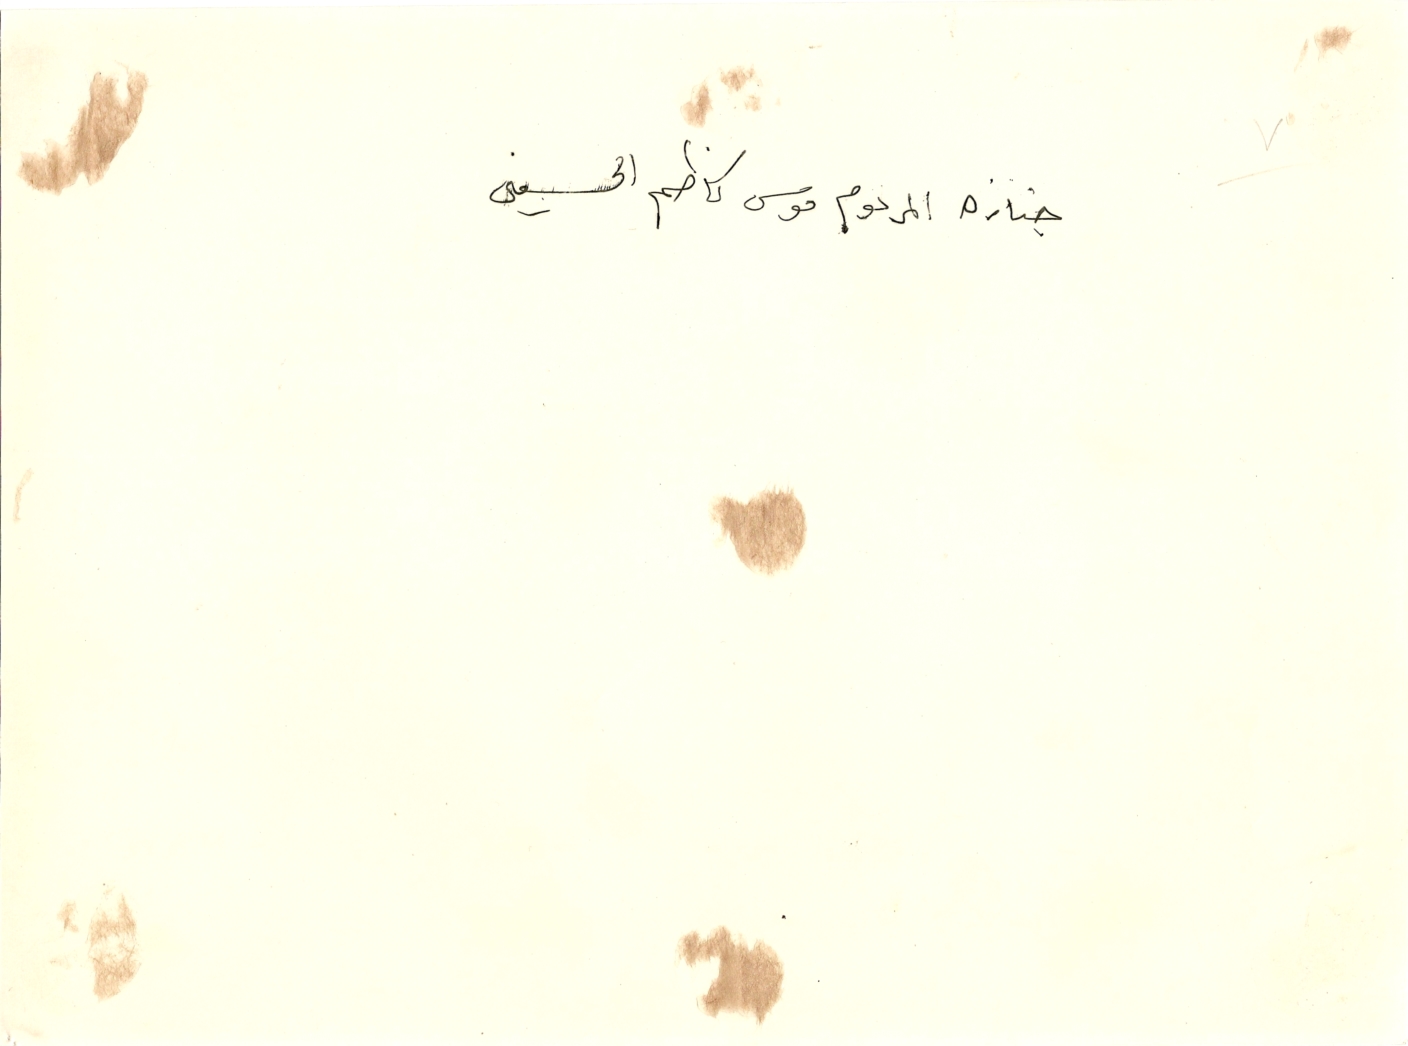 جنازه المرحوم موسى كاظم الحسيني
٧